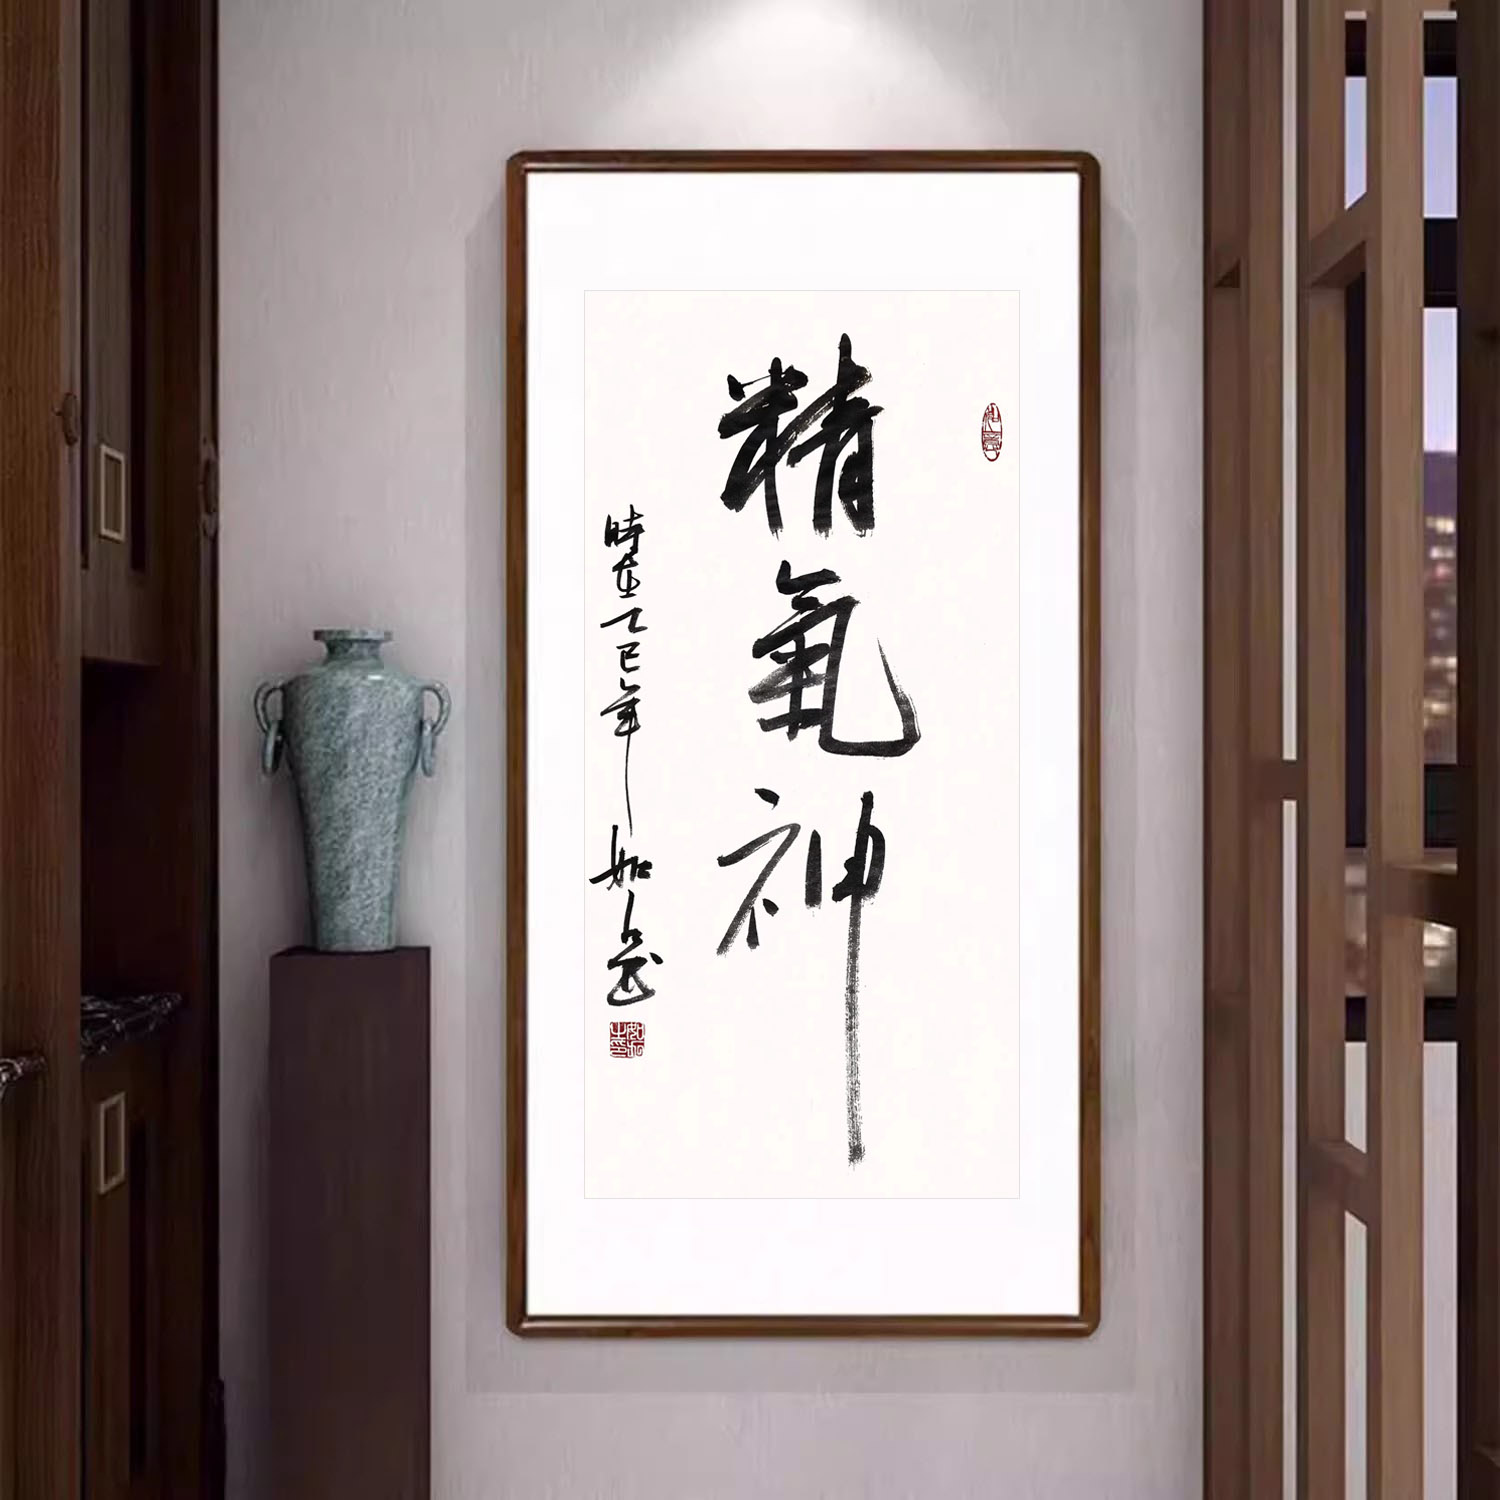 精氣神
時在乙巳年
如